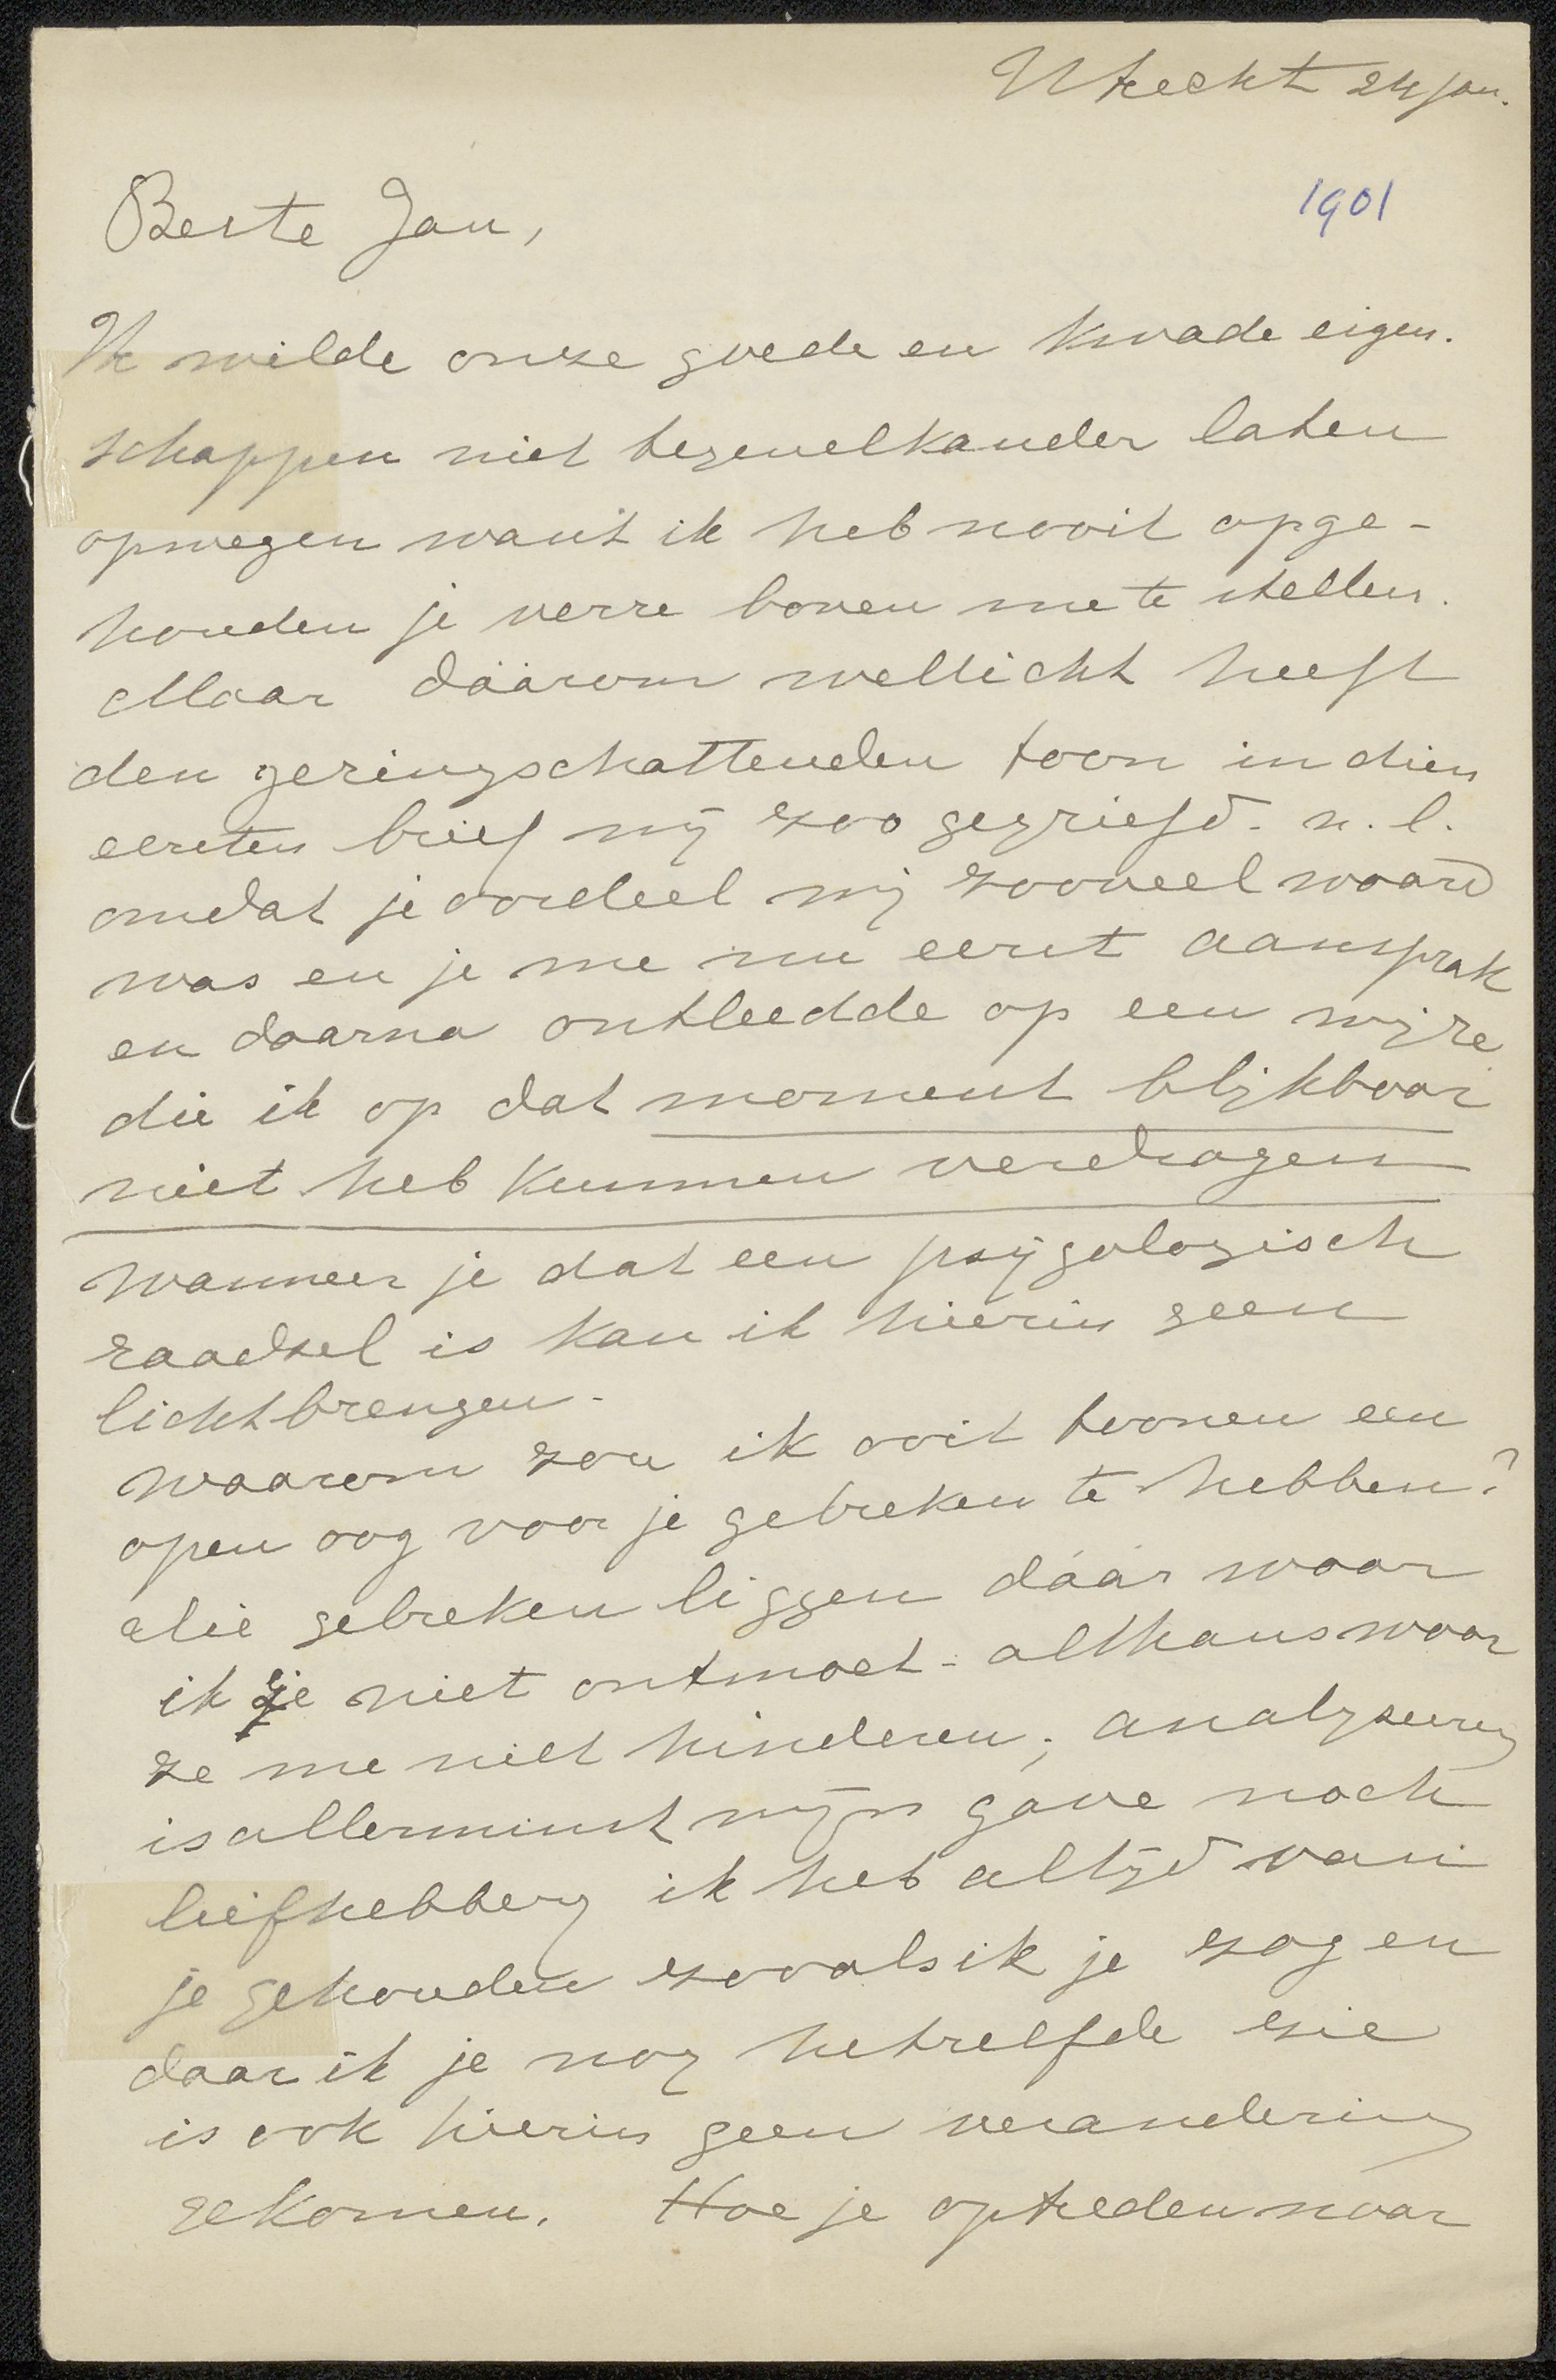 Utrecht 24 jan.
1901
Beste Jan,
Ik wilde onze goede en kwade eigen-
schappen niet tegenelkander laten
opwegen want ik heb nooit opge-
houden je verre boven me te stellen.
Maar dáárom wellicht heeft
den geringschattenden toon in dien
eersten brief mij zoo gegriefd. n.l.
omdat je oordeel mij zooveel waard
was en je me nu eerst aansprak
en daarna ontleedde op een wijze
die ik op dat moment blijkbaar
niet heb kunnen verdragen
wanneer je dat een psygologisch
raadsel is kan ik hierin geen
licht brengen.
waarom zou ik ooit toonen een
open oog voor je gebreken te hebben?
die gebreken liggen dáár waar
ik je niet ontmoet - althans waar
ze me niet hinderen; analyseering
is allerminst mijn gave noch
liefhebberij ik heb altijd van
je gehouden zooals ik je zag en
daar ik je nog hetzelfde zie
is ook hierin geen verandering
gekomen. Hoe je optreden naar